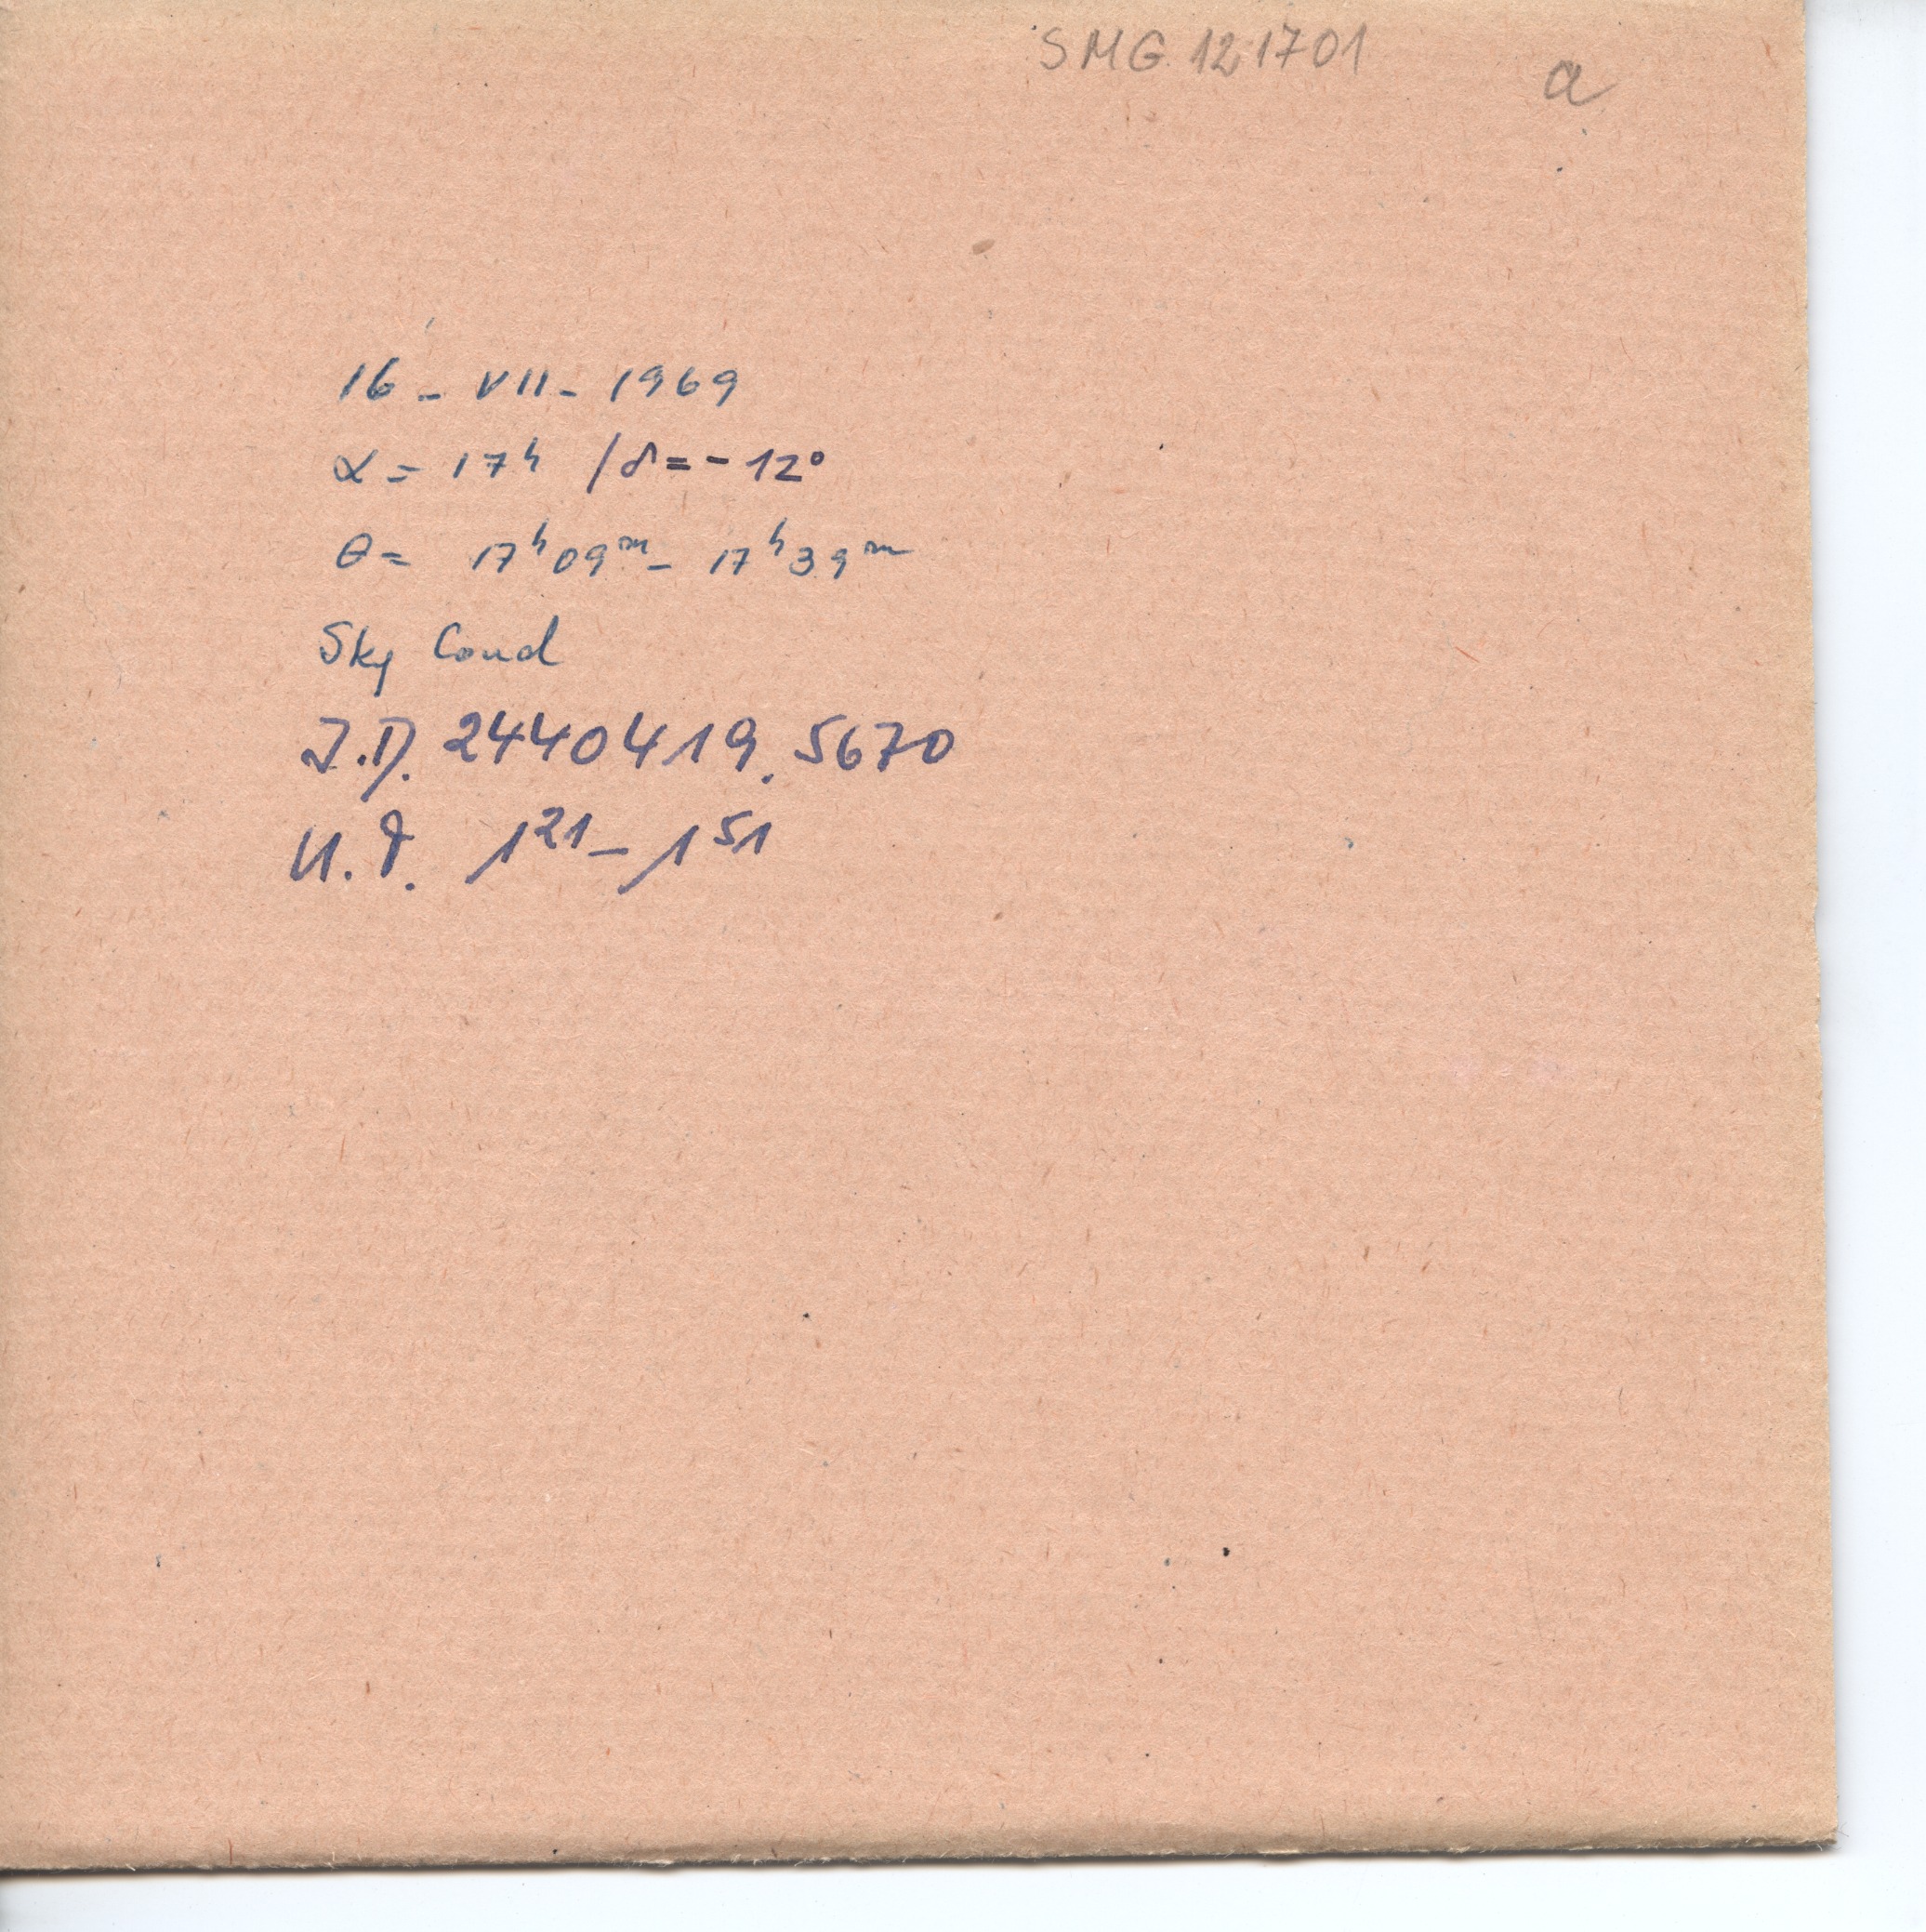 SMG 121701 a
16 - VII - 1969
α = 17ʰ / δ = - 12°
θ = 17ʰ09ᵐ - 17ʰ39ᵐ
Sky Cond
J.D. 2440419.5670
U.T. 1²¹ - 1⁵¹